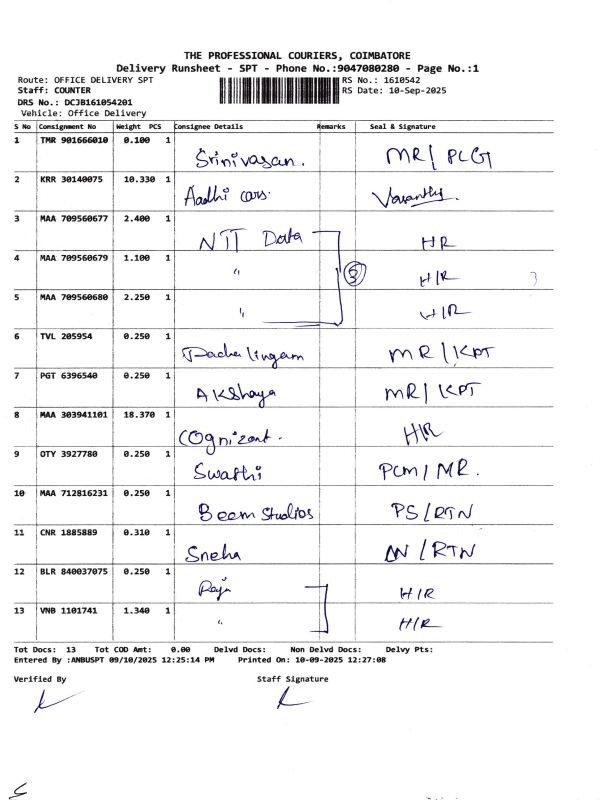 THE PROFESSIONAL COURIERS, COIMBATORE
Delivery Runsheet - SPT - Phone No.:9047080280 - Page No.:1
Route: OFFICE DELIVERY SPT RS No.: 1610542
Staff: COUNTER RS Date: 10-Sep-2025
DRS No.: DCJB161054201
Vehicle: Office Delivery
S No Consignment No Weight PCS Consignee Details Remarks Seal & Signature
1 TMR 901666010 0.100 1 Srinivasan. MR/PLGT
2 KRR 30140075 10.330 1 Aadhi cars.
3 MAA 709560677 2.400 1 NTT Data HR
4 MAA 709560679 1.100 1 " H/R
5 MAA 709560680 2.250 1 " H/R
6 TVL 205954 0.250 1 MR/KPT
7 PGT 6396540 0.250 1 AKshaya MR/KPT
8 MAA 303941101 18.370 1 COgnizant. H/R
9 OTY 3927780 0.250 1 Swathi PCM/MR.
10 MAA 712816231 0.250 1 Beem Studios PS/RTN
11 CNR 1885889 0.310 1 Sneha /RTN
12 BLR 840037075 0.250 1 Raju H/R
13 VNB 1101741 1.340 1 " H/R
Tot Docs: 13 Tot COD Amt: 0.00 Delvd Docs: Non Delvd Docs: Delvy Pts:
Entered By :ANBUSPT 09/10/2025 12:25:14 PM Printed On: 10-09-2025 12:27:08
Verified By Staff Signature